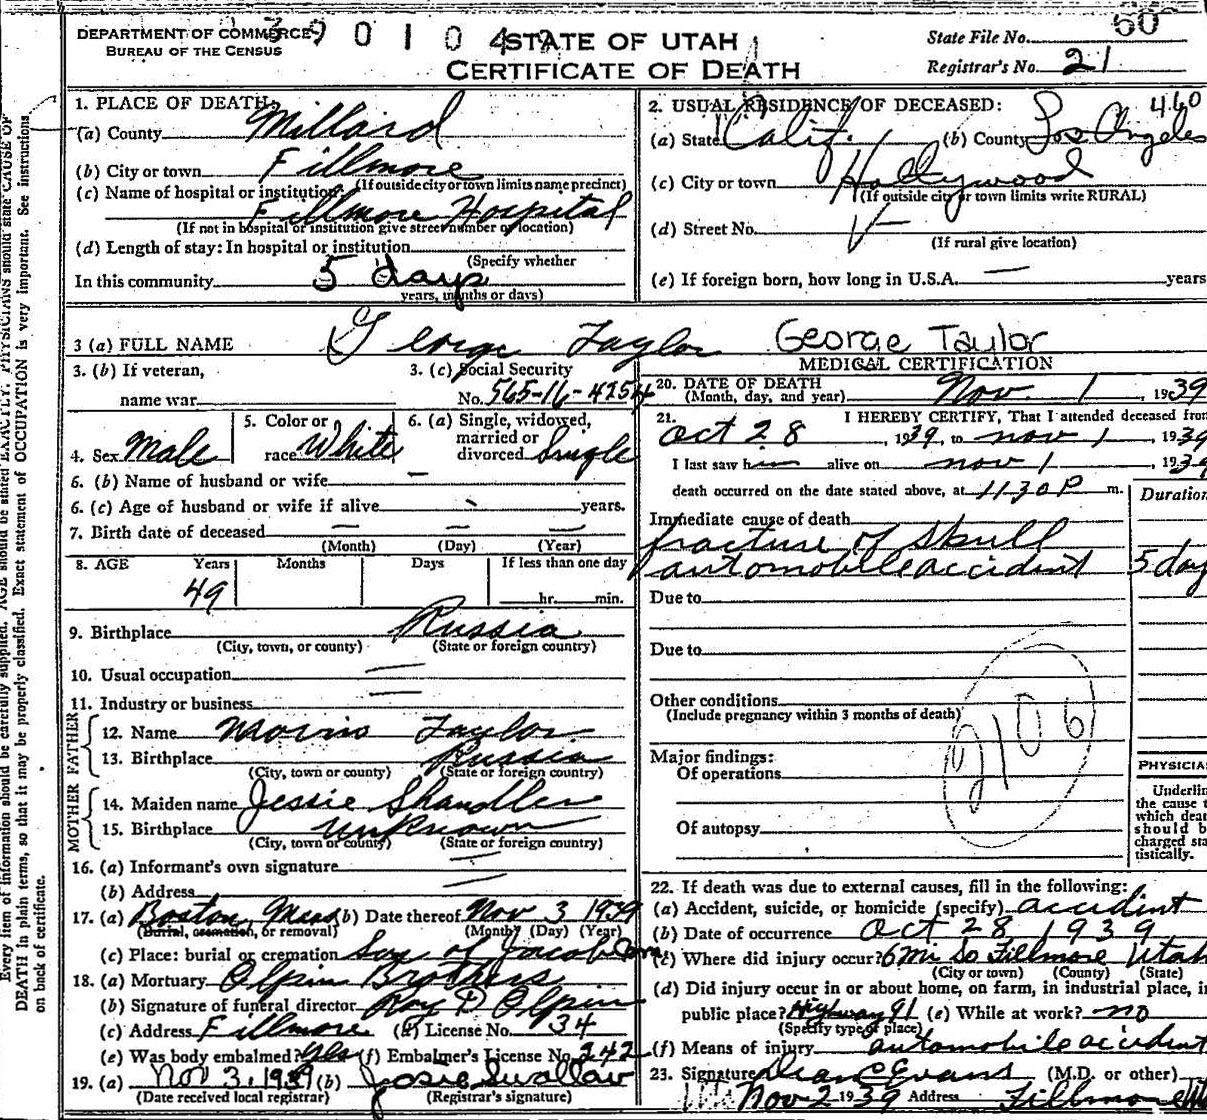 DEPARTMENT OF COMMERCE
BUREAU OF THE CENSUS
STATE OF UTAH
CERTIFICATE OF DEATH
State File No. 60
Registrar's No. 21
1. PLACE OF DEATH:
(a) County Millard
(b) City or town Fillmore
(If outside city or town limits name precinct)
(c) Name of hospital or institution
Fillmore Hospital
(If not in hospital or institution give street number or location)
(d) Length of stay: In hospital or institution
(Specify whether
In this community 5 days
years, months or days)
2. USUAL RESIDENCE OF DECEASED: 460
(a) State Calif. (b) County Los Angeles
(c) City or town Hollywood
(If outside city or town limits write RURAL)
(d) Street No.
(If rural give location)
(e) If foreign born, how long in U.S.A. — years
3 (a) FULL NAME George Taylor George Taylor
3. (b) If veteran,
name war
3. (c) Social Security
No. 565-16-4254
4. Sex Male
5. Color or
race White
6. (a) Single, widowed,
married or
divorced Single
6. (b) Name of husband or wife —
6. (c) Age of husband or wife if alive years.
7. Birth date of deceased — — —
(Month) (Day) (Year)
8. AGE Years Months Days If less than one day
49 hr. min.
9. Birthplace Russia
(City, town, or county) (State or foreign country)
10. Usual occupation —
11. Industry or business —
FATHER
12. Name Morris Taylor
13. Birthplace Russia
(City, town or county) (State or foreign country)
MOTHER
14. Maiden name Jessie Shandler
15. Birthplace unknown
(City, town or county) (State or foreign country)
16. (a) Informant's own signature —
(b) Address —
17. (a) Boston, Mass (b) Date thereof Nov 3 1939
(Burial, cremation, or removal) (Month) (Day) (Year)
(c) Place: burial or cremation Son of Jacob Cem
18. (a) Mortuary Olpin Brothers
(b) Signature of funeral director Roy D Olpin
(c) Address Fillmore (d) License No. 34
(e) Was body embalmed? Yes (f) Embalmer's License No. 242
19. (a) Nov 3, 1939 (b) Josie Swallow
(Date received local registrar) (Registrar's signature)
MEDICAL CERTIFICATION
20. DATE OF DEATH
(Month, day, and year) Nov. 1, 1939
21. I HEREBY CERTIFY, That I attended deceased from
Oct 28, 1939, to Nov 1, 1939
I last saw him alive on Nov 1, 1939
death occurred on the date stated above, at 11:30 P m.
Duration
Immediate cause of death
fracture of skull
automobile accident 5 day
Due to
Due to
Other conditions
(Include pregnancy within 3 months of death)
2106
Major findings:
Of operations
Of autopsy
PHYSICIA
Underlin
the cause t
which deat
should b
charged sta
tistically.
22. If death was due to external causes, fill in the following:
(a) Accident, suicide, or homicide (specify) accident
(b) Date of occurrence Oct 28 1939
(c) Where did injury occur? 6 Mi So Fillmore Utah
(City or town) (County) (State)
(d) Did injury occur in or about home, on farm, in industrial place, in
public place? Highway 91 (e) While at work? no
(Specify type of place)
(f) Means of injury automobile accident
23. Signature Dean C Evans (M.D. or other)
Nov 2 1939 Address Fillmore Ut
Every item of information should be carefully supplied. AGE should be stated EXACTLY. PHYSICIANS should state CAUSE OF
DEATH in plain terms, so that it may be properly classified. Exact statement of OCCUPATION is very important. See instructions
on back of certificate.